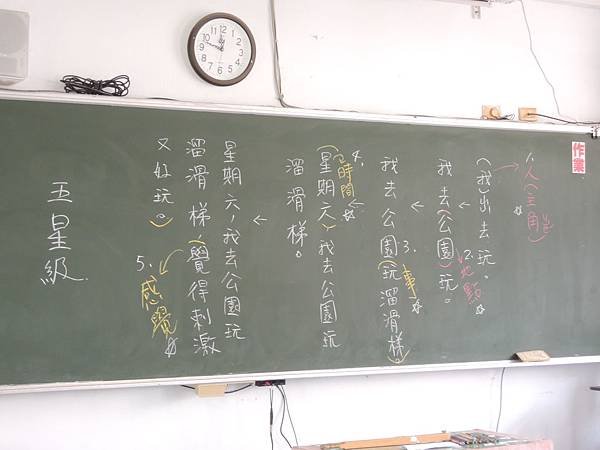 作業
1.人(主角)
(我)出去玩。
2.地點
我去(公園)玩。
3.事
我去公園(玩溜滑梯。)
4.時間
(星期六),我去公園玩
溜滑梯。
星期六,我去公園玩
溜滑梯(覺得刺激
又好玩。)
5.感覺
五星級